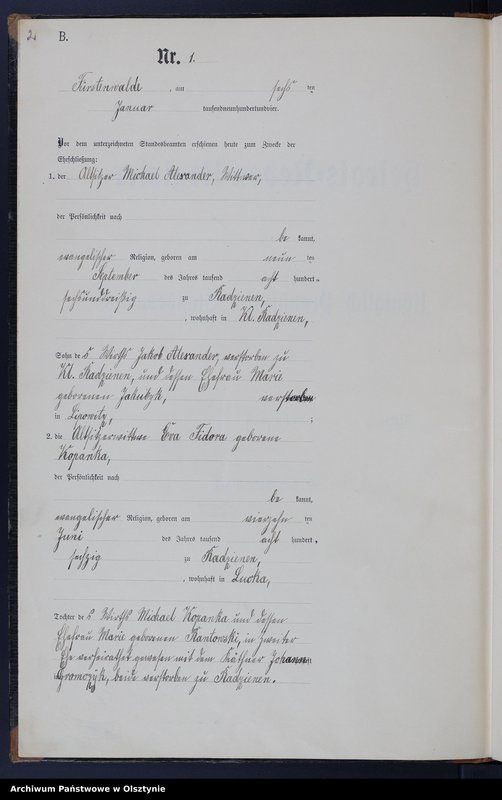 2.
B.
Nr. 1.
Fürstenwalde, am sechs ten
Januar tausendneunhundertundvier.
Vor dem unterzeichneten Standesbeamten erschienen heute zum Zwecke der
Eheschließung:
1. der Altsitzer Michael Alexander, Wittwer,
der Persönlichkeit nach
be kannt,
evangelischer Religion, geboren am neun ten
September des Jahres tausend acht hundert
sechsunddreißig zu Radzienen,
, wohnhaft in Kl. Radzienen,
Sohn des Wirths Jakob Alexander, verstorben zu
Kl. Radzienen, und dessen Ehefrau Marie
geborenen Jakubzik, verstorben
in Lipowitz,
;
2. die Altsitzerwittwe Eva Fidora geborene
Kopanka,
der Persönlichkeit nach
be kannt,
evangelischer Religion, geboren am vierzehn ten
Juni des Jahres tausend acht hundert
sechzig zu Radzienen,
, wohnhaft in Lucka,
Tochter des Wirths Michael Kopanka und dessen
Ehefrau Marie geborenen Kantowski, in zweiter
Ehe verheirathet gewesen mit dem Käthner Johann
Gromzik, beide verstorben zu Radzienen.
Archiwum Państwowe w Olsztynie